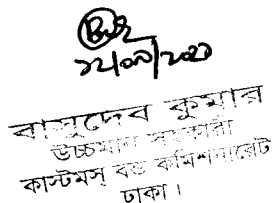 ১২/০৯/২০২১
বাসুদেব কুমার
উচ্চমান সহকারী
কাস্টমস্ বন্ড কমিশনারেট
ঢাকা।